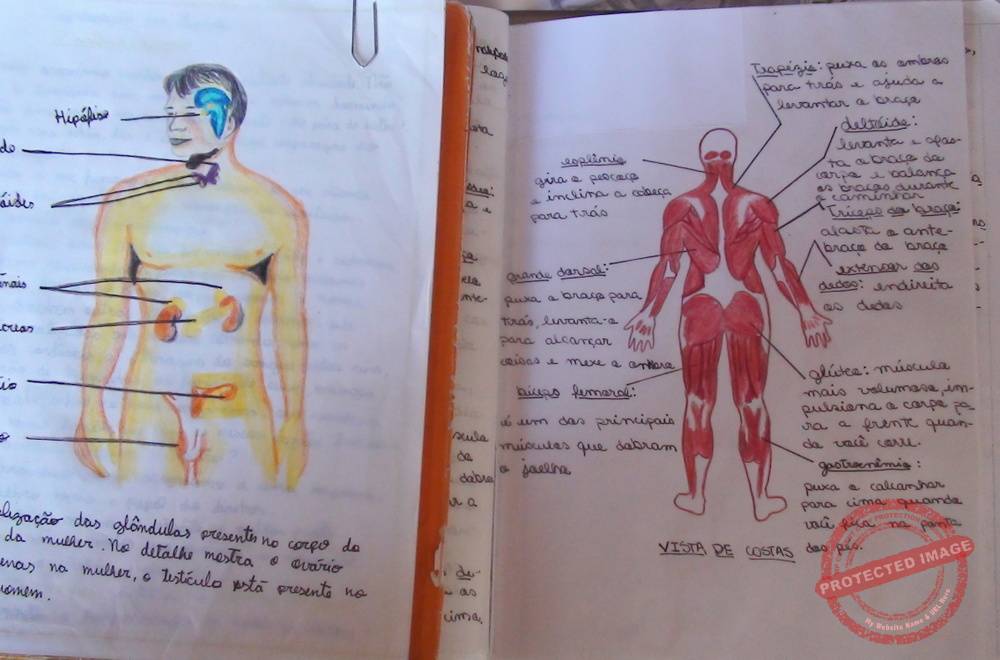 Hipófise
do
óides
enais
creas
rio
o
lização das glândulas presente no corpo do
da mulher. No detalhe mostra o ovário
enas na mulher, o testículo está presente no
omem.
Trapézio: puxa os ombros
para trás e ajuda a
levantar o braço
deltóide:
levanta e afas-
ta o braço do
corpo e balança
os braços durante
o caminhar
Tríceps do braço:
afasta o ante-
braço do braço
extensor dos
dedos: endireita
os dedos
glúteo: músculo
mais volumoso, im-
pulsiona o corpo pa-
ra a frente quan-
do você corre.
gastrocnêmio:
puxa o calcanhar
para cima quando
você fica na ponta
dos pés.
esplênio
gira o pescoço
e inclina a cabeça
para trás
grande dorsal:
puxa o braço para
trás, levanta-o
para alcançar
coisas e mexe o ombro
bíceps femoral:
é um dos principais
músculos que dobram
o joelho
VISTA DE COSTAS
PROTECTED IMAGE
My Website Name & URL Here